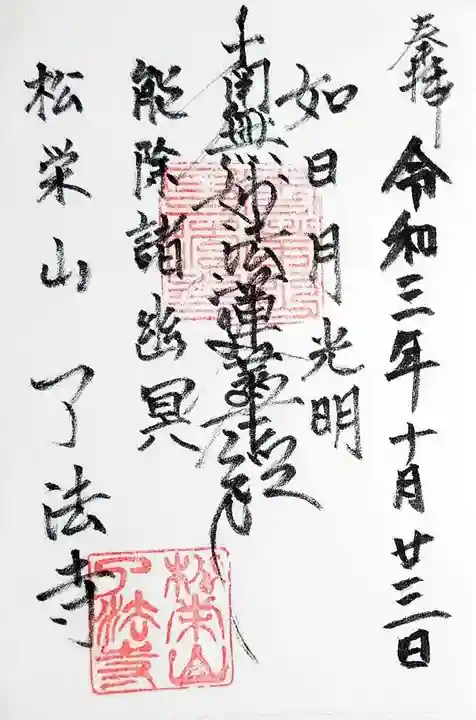 奉拝
令和三年十月廿三日
如日月光明
南無妙法蓮華経
能除諸幽冥
松栄山了法寺
松栄山
了法寺